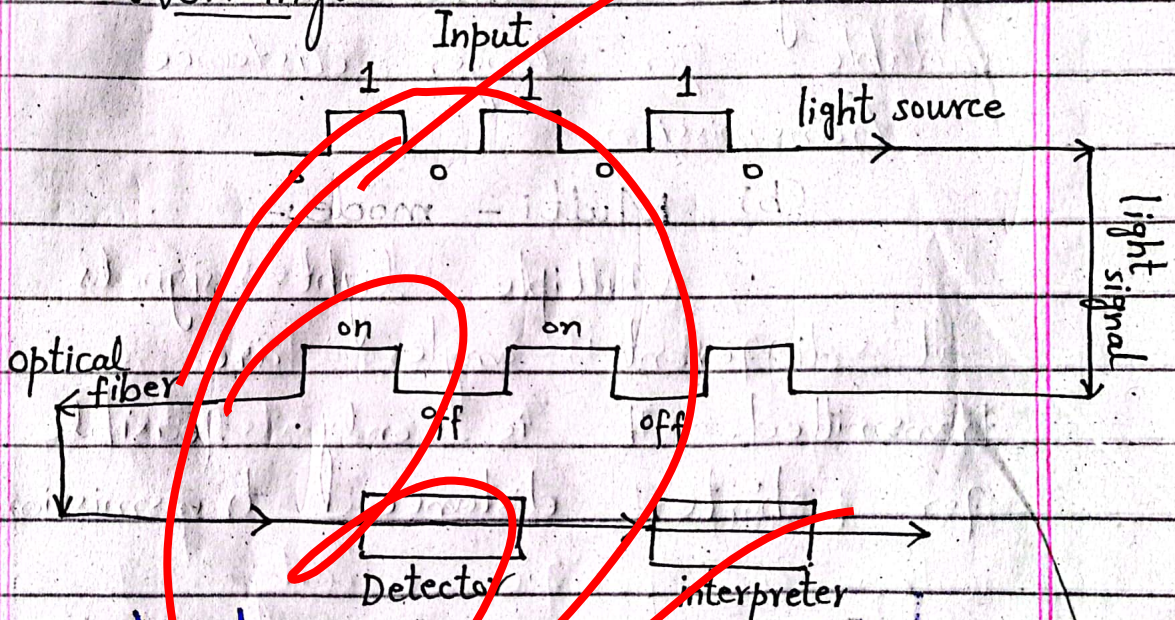 Input
1 1 1
light source
0 0 0
light signal
on on
optical fiber
off off
Detector interpreter